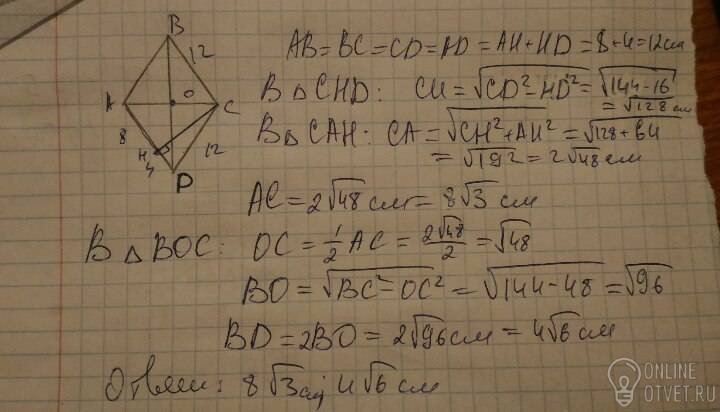 B
12
A
O
C
8
H
4
12
D
AB=BC=CD=AD=AH+HD=8+4=12см
В △ CHD: CH = √(CD²-HD²) = √(144-16)
= √128 см
В △ CAH: CA = √(CH²+AH²) = √(128+64)
= √192 = 2√48 см
AC = 2√48 см = 8√3 см
В △ BOC: OC = 1/2 AC = 2√48/2 = √48
BO = √(BC²-OC²) = √(144-48) = √96
BD = 2BO = 2√96 см = 4√6 см
Ответ: 8√3 см; 4√6 см
ONLINE
OTVET.RU